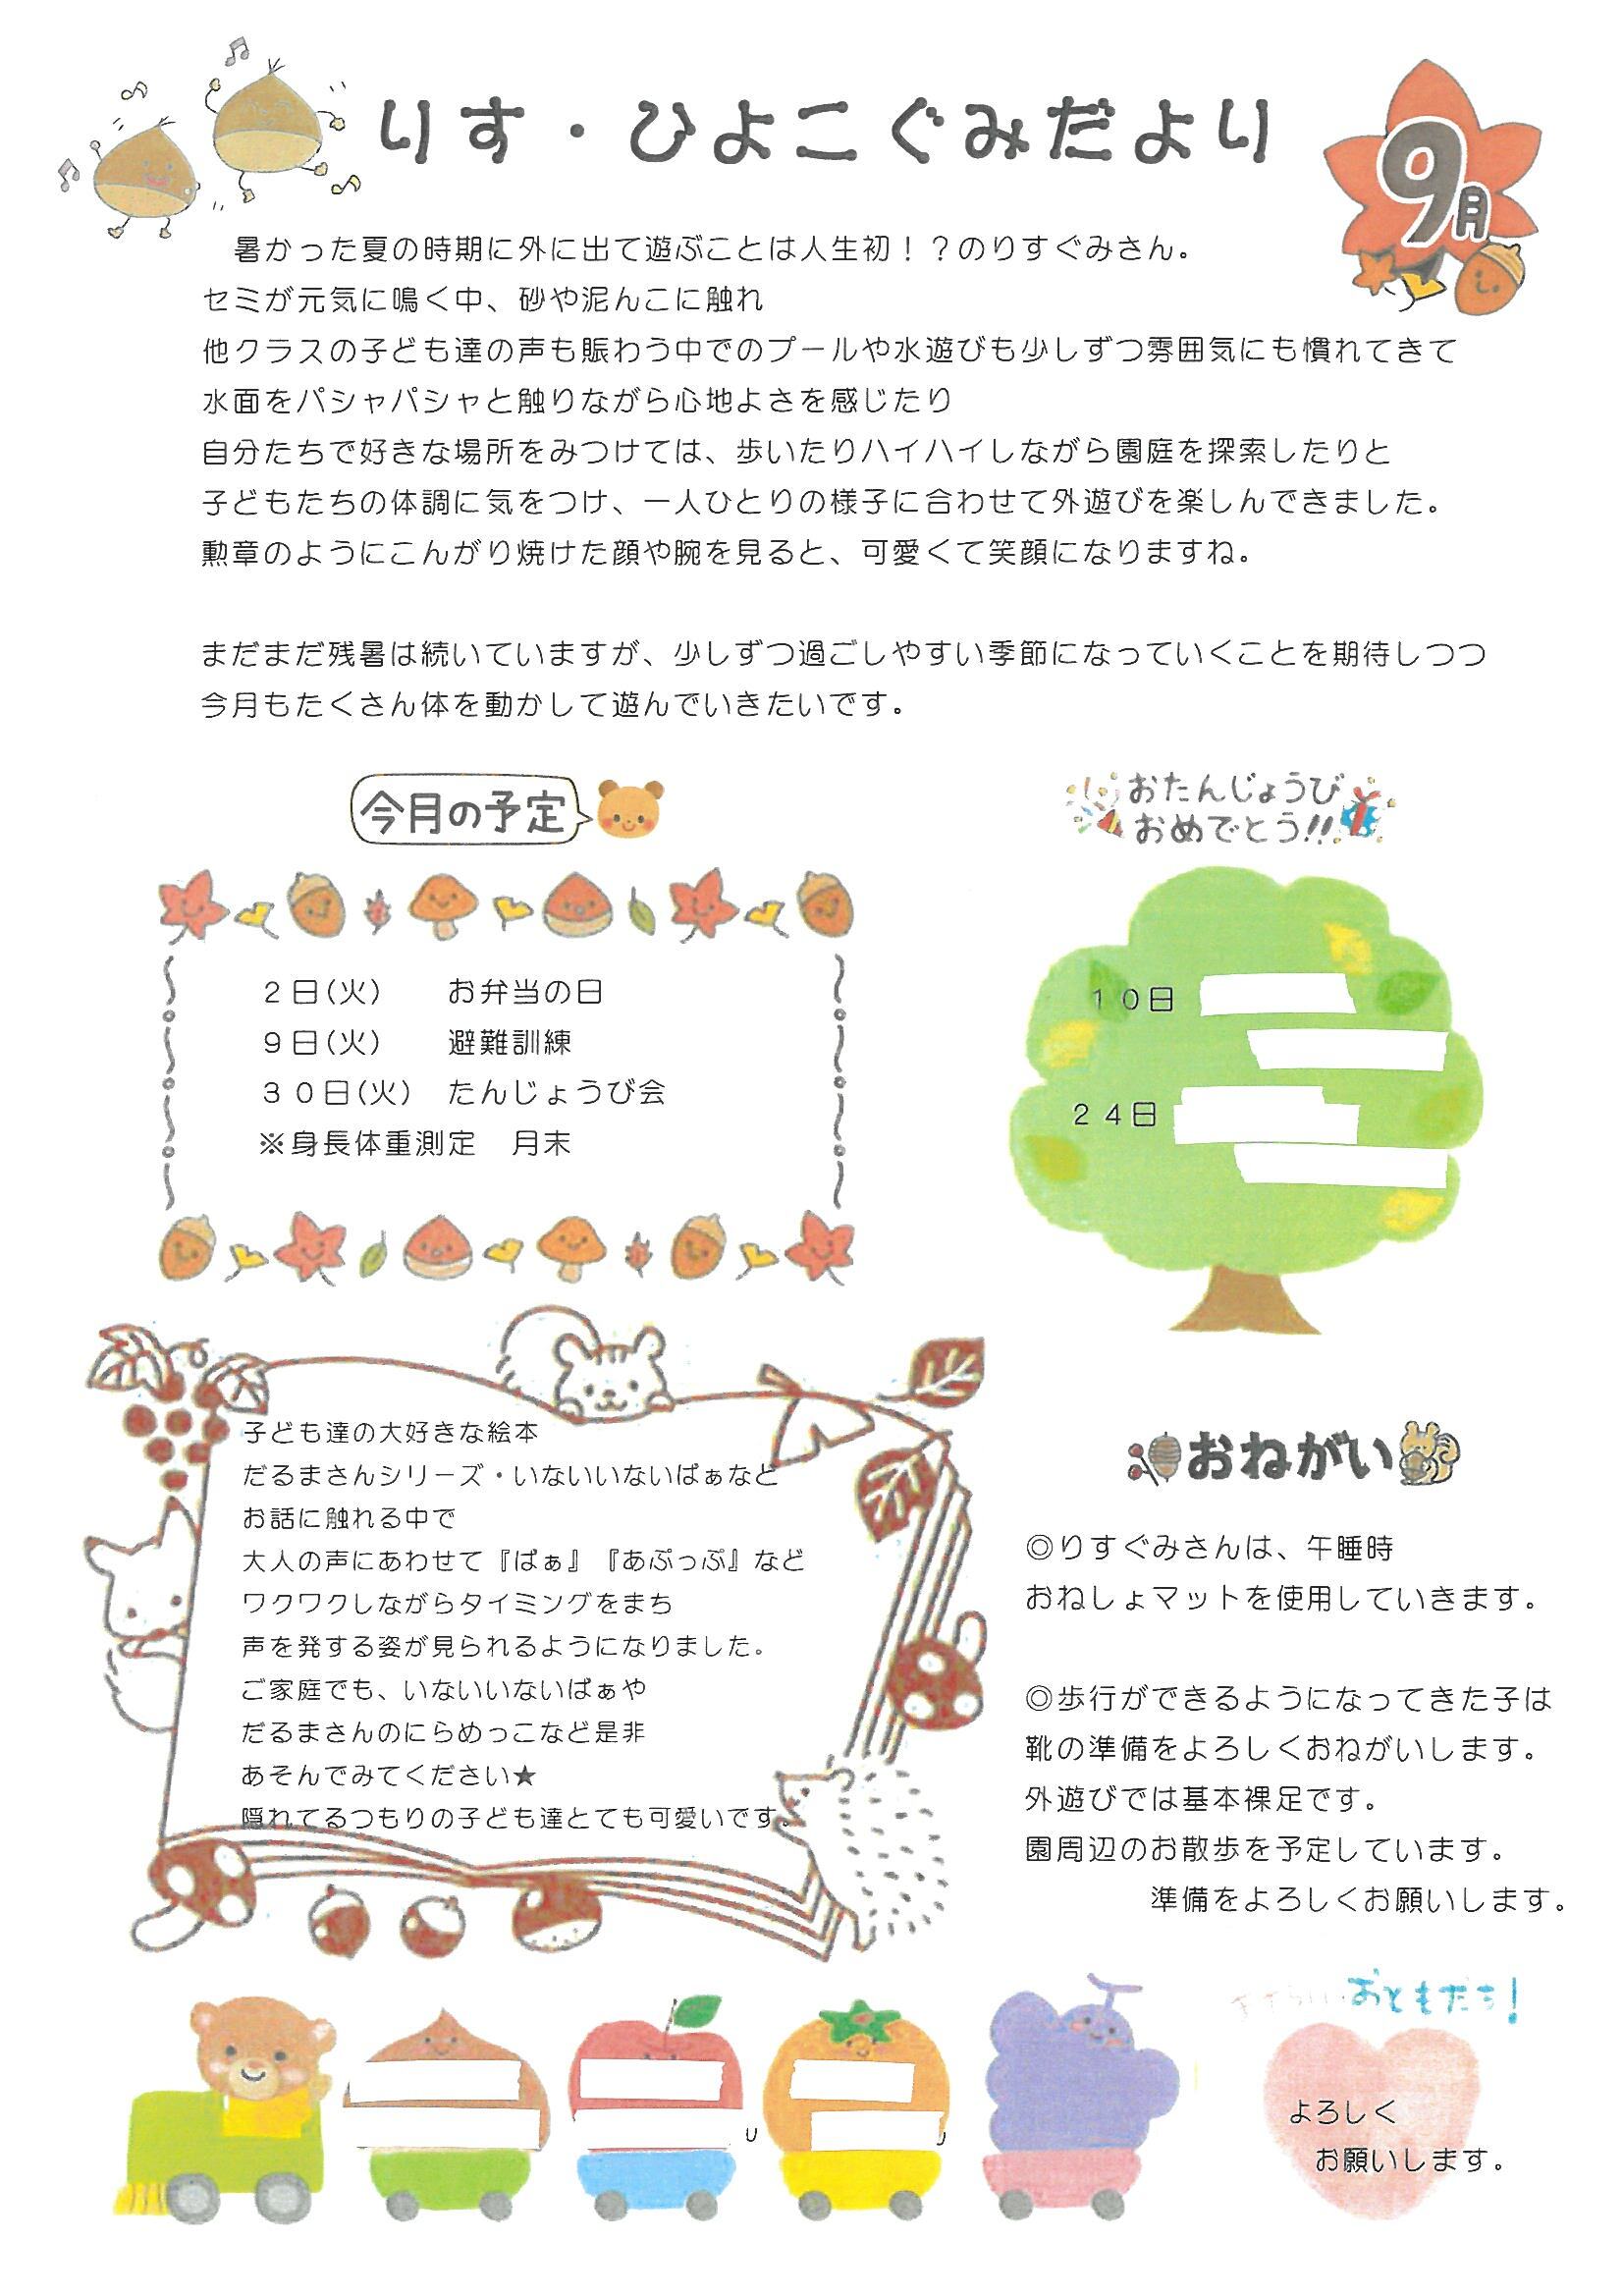 りす・ひよこぐみだより
9月
暑かった夏の時期に外に出て遊ぶことは人生初！？のりすぐみさん。
セミが元気に鳴く中、砂や泥んこに触れ
他クラスの子ども達の声も賑わう中でのプールや水遊びも少しずつ雰囲気にも慣れてきて
水面をパシャパシャと触りながら心地よさを感じたり
自分たちで好きな場所をみつけては、歩いたりハイハイしながら園庭を探索したりと
子どもたちの体調に気をつけ、一人ひとりの様子に合わせて外遊びを楽しんできました。
勲章のようにこんがり焼けた顔や腕を見ると、可愛くて笑顔になりますね。
まだまだ残暑は続いていますが、少しずつ過ごしやすい季節になっていくことを期待しつつ
今月もたくさん体を動かして遊んでいきたいです。
今月の予定
２日(火)　お弁当の日
９日(火)　避難訓練
３０日(火)　たんじょうび会
※身長体重測定　月末
おたんじょうび
おめでとう!!
１０日
２４日
子ども達の大好きな絵本
だるまさんシリーズ・いないいないばぁなど
お話に触れる中で
大人の声にあわせて『ばぁ』『あぷっぷ』など
ワクワクしながらタイミングをまち
声を発する姿が見られるようになりました。
ご家庭でも、いないいないばぁや
だるまさんのにらめっこなど是非
あそんでみてください★
隠れてるつもりの子ども達とても可愛いです。
おねがい
◎りすぐみさんは、午睡時
おねしょマットを使用していきます。
◎歩行ができるようになってきた子は
靴の準備をよろしくおねがいします。
外遊びでは基本裸足です。
園周辺のお散歩を予定しています。
準備をよろしくお願いします。
おともだち!
よろしく
お願いします。